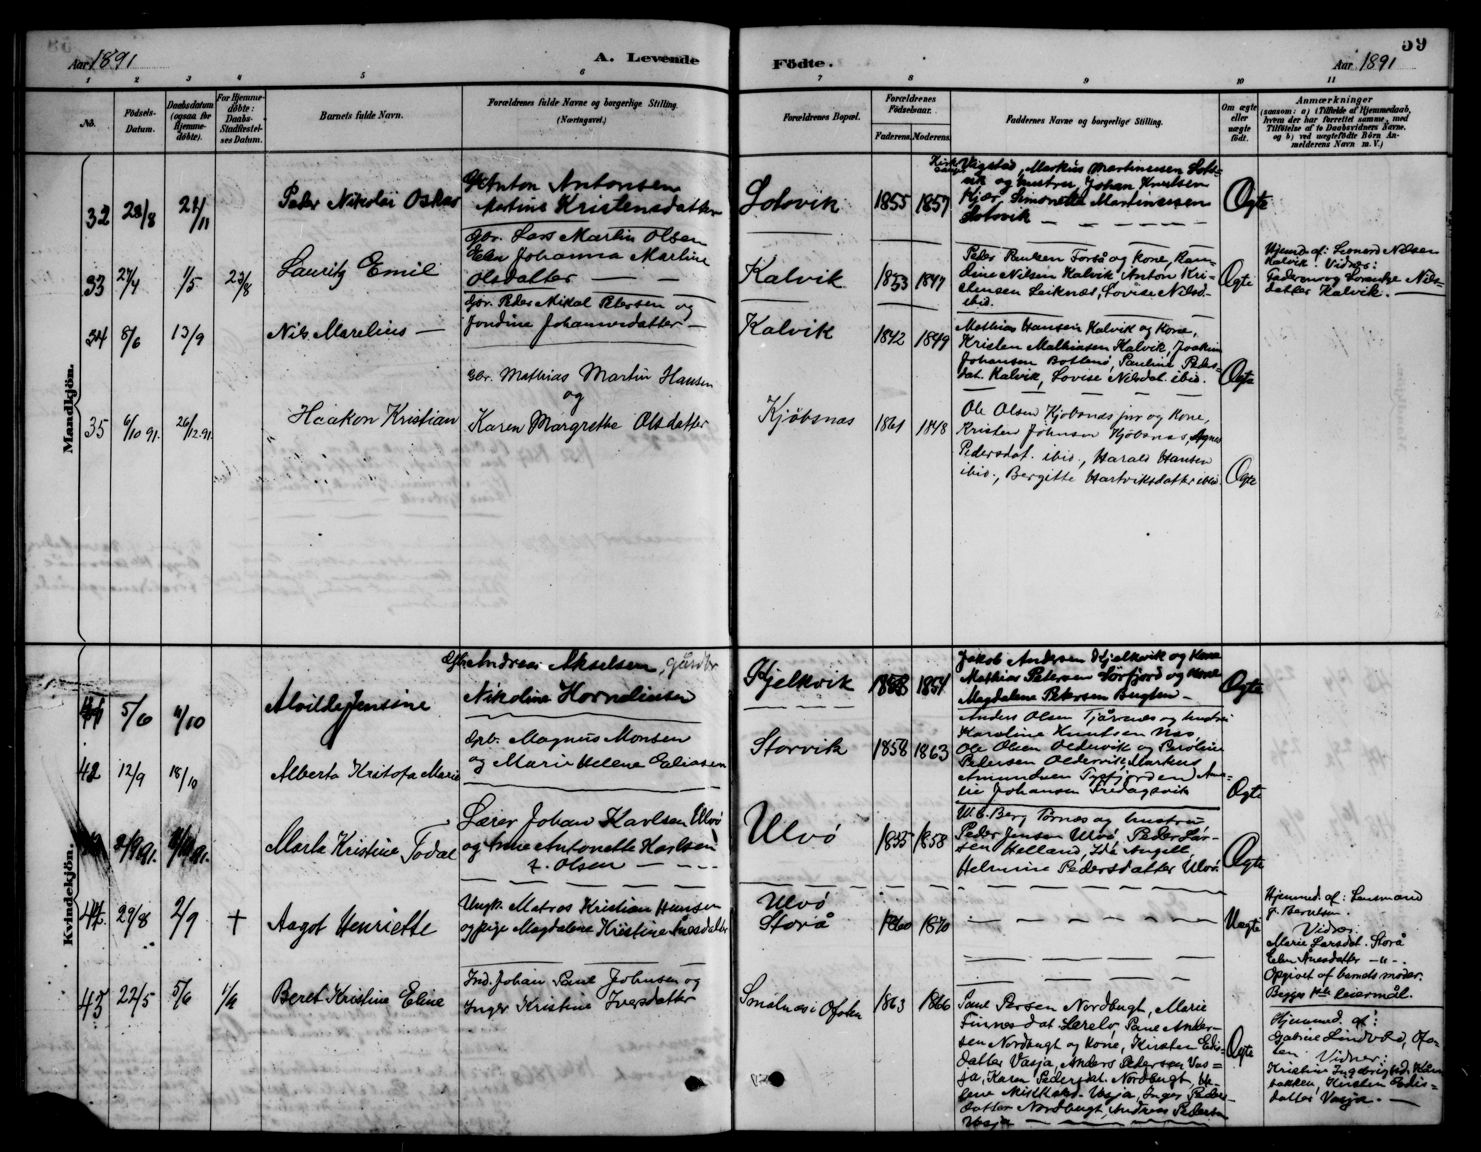 Aar 1891
A. Levende
Födte.
59
Aar 1891
1 2 3 4 5 6 7 8 9 10 11
No.
Födsels-
Datum.
Daabsdatum
(ogsaa for
Hjemme-
döbte).
For Hjemme-
döbte:
Daabs-
Stadfæstel-
ses Datum.
Barnets fulde Navn.
Forældrenes fulde Navne og borgerlige Stilling.
(Næringsvei.)
Forældrenes Bopæl.
Forældrenes
Födselsaar.
Faderens. Moderens.
Faddernes Navne og borgerlige Stilling.
Om ægte
eller
uægte
födt.
Anmærkninger
(saasom: a) i Tilfælde af Hjemmedaab,
hvem der har forrettet samme, med
Tilföielse af to Daabsvidners Navne.
og b) ved uægtefödte Börn An-
melderens Navn m. V.)
Mandkjön.
32 23/8 21/11
Peder Nikolai Oskar
Anton Antonsen
Martine Kristensdatter
Sotovik
1855 1857
Markus Martinessen
og hustru, Johan Knutsen
Kjær, Simonette Martinessen
Sotovik
Ægte
33 27/4 1/5 23/8
Lauritz Emil
Gbr. Lars Martin Olsen
Elen Johanna Martine
Olsdatter
Kalvik
1853 1847
Peder Forså og kone,
Nilsen Kalvik, Anton Kri-
stensen Leiknæs, Lovise Nilsd.
ibid.
Ægte
Hjemmd. af: Leonard Nilsen
Kalvik. Vidner:
Faderen og Nils-
datter Kalvik.
34 8/6 13/9
Nils Marelius
Gbr. Peder Mikal Petersen og
Jondine Johannesdatter
Kalvik
1842 1849
Mathias Hansen Kalvik og Kone,
Kristen Mathiasen Kalvik, Joakim
Johansen Botlnö, Pauline Peds-
dat. Kalvik, Lovise Nilsdat. ibid.
Ægte
35 6/10 91. 26/12.91.
Haakon Kristian
Gbr. Mathias Martin Hansen
og
Karen Margrethe Olsdatter
Kjøbsnæs
1861 1848
Ole Olsen Kjøbsnæs jnr og Kone,
Kristen Johnsen Kjøbsnæs, Agnes
Pedersdat. ibid., Harald Hansen
ibid., Bergitte Hartviksdatter ibid.
Ægte
Kvindekjön.
41 5/6 4/10
Alvilde Jensine
Gbr. Andreas Akselsen, gårdbr
Nikoline Korneliussen
Kjelkvik
1858 1854
Jakob Andersen Kjelkvik og Kone
Mathias Petersen Sørfjord og Kone
Magdalene Petersen Bugten
Ægte
42 12/9 18/10
Alberta Kristofa Marie
Grb. Magnus Monsen
og Marie Helene Eliasen
Storvik
1858 1863
Anders Olsen Tjårnæs og hustru
Karoline Knutsen Næs,
Ole Olsen Oldervik og Beroline
Pedersen Oldervik, Markus
Amundsen Tysfjorden,
Johansen
Ægte
Marta Kristine Todal
Lærer Johan Karlsen Ulvø
og Anne Antonette Karlsen
f. Olsen
Ulvø
1855 1858
Berg Tornæs og hustru
Peder Jensen Ulvø, Peder Lar-
sen Helland, Ida Angell
Helmine Pedersdatter Ulvø
Ægte
44 29/8 2/9 +
Aagot Henriette
Ungk. Matros Kristian Hansen
og pige Magdalene Kristine Anesdatter
Ulvø
Storå
1860 1870
Uægte
Hjemmd. af: Lensmand
J. Berntsen.
Vidner
Marie Larsdat. Storå
Elen Anesdatter -"-
Opgivet af barnets moder.
Begges 1ste leiermål.
45 22/5 5/6 1/9
Beret Kristine Eline
Ind. Johan Paul Johnsen og
Inger Kristine Iversdatter
Småtnæs i Ofoten
1863 1866
Paul Persen Nordbugt, Marie
Finnesdat Lærelv, Paul Ander-
sen Nordbugt og kone, Kirsten Edis-
datter Vasja, Anders Pedersen Vas-
ja, Karen Pedersdat. Nordbugt,
Vasja, Inger Peders-
datter Nordbugt, Andreas Pedersen
Vasja
Ægte
Hjemmd. af:
Gabriel Lindvold, Ofo-
ten Vidner:
Kristine Ingebrigtsd.
bakken, Kirsten Edis-
datter Vasja.